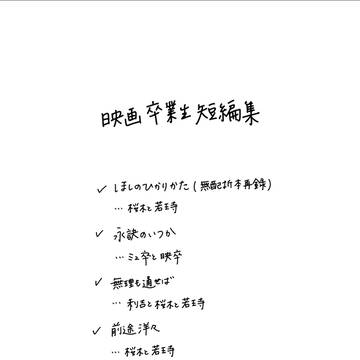 映画卒業生短編集
✓ ほしのひかりかた(無配折本再録)
… 桜木と若王寺
✓ 永訣のいつか
… ミュ卒と映卒
✓ 無理も通せば
… 利吉と桜木と若王寺
✓ 前途洋々
… 桜木と若王寺